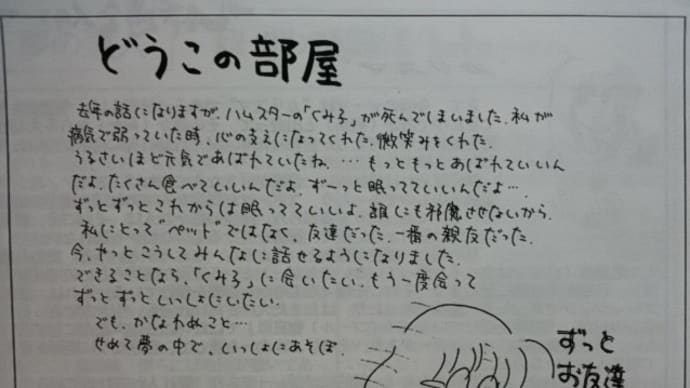 どうこの部屋
去年の話になりますが、ハムスターの「くみ子」が死んでしまいました。私が
病気で弱っていた時、心の支えになってくれた。微笑みをくれた。
うるさいほど元気であばれていたね。…もっともっとあばれていいん
だよ。たくさん食べていいんだよ。ずーっと眠ってていいんだよ…。
ずっとずっとこれからは眠ってていいよ。誰にも邪魔させないから。
私にとって"ペット"ではなく、友達だった。一番の親友だった。
今、やっとこうしてみんなに話せるようになりました。
できることなら、「くみ子」に会いたい。もう一度会って
ずっとずっといっしょにいたい。
でも、かなわぬこと…
せめて夢の中で、いっしょにあそぼ。
ずっと
お友達